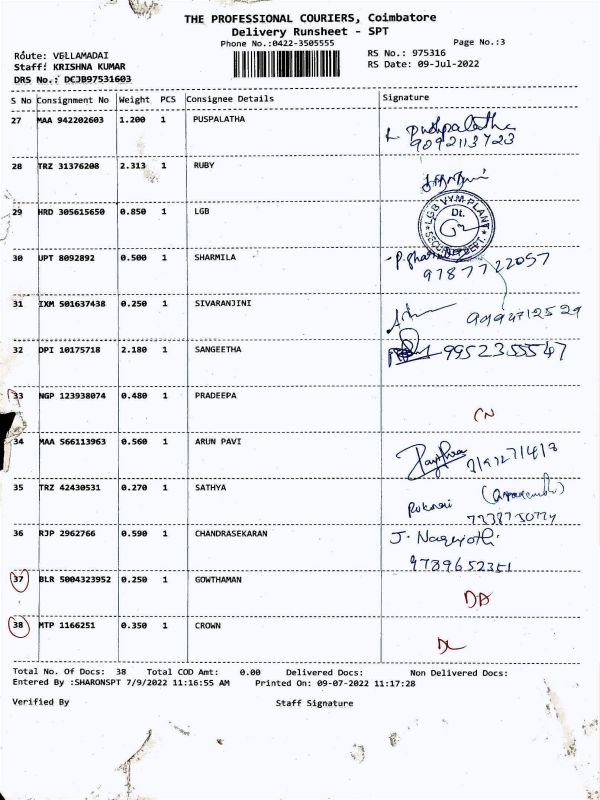 THE PROFESSIONAL COURIERS, Coimbatore
Delivery Runsheet - SPT
Phone No.:0422-3505555
Page No.:3
Route: VELLAMADAI
RS No.: 975316
Staff: KRISHNA KUMAR
RS Date: 09-Jul-2022
DRS No.: DCJB97531603
S No Consignment No Weight PCS Consignee Details Signature
27 MAA 942202603 1.200 1 PUSPALATHA
9092113723
28 TRZ 31376208 2.313 1 RUBY
29 HRD 305615650 0.850 1 LGB
LGB V.Y.M. PLANT
30 UPT 8092892 0.500 1 SHARMILA
9787722057
31 IXM 501637438 0.250 1 SIVARANJINI
32 DPI 10175718 2.180 1 SANGEETHA
33 NGP 123938074 0.480 1 PRADEEPA
CN
34 MAA 566113963 0.560 1 ARUN PAVI
35 TRZ 42430531 0.270 1 SATHYA
36 RJP 2962766 0.590 1 CHANDRASEKARAN
9789652351
37 BLR 5004323952 0.250 1 GOWTHAMAN
DA
38 MTP 1166251 0.350 1 CROWN
DL
Total No. Of Docs: 38 Total COD Amt: 0.00 Delivered Docs: Non Delivered Docs:
Entered By :SHARONSPT 7/9/2022 11:16:55 AM Printed On: 09-07-2022 11:17:28
Verified By Staff Signature